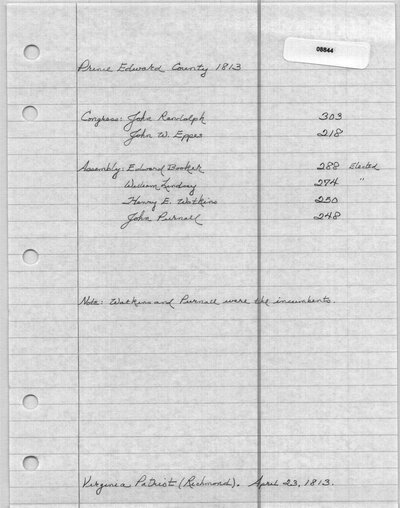 08844
Prince Edward County 1813
Congress: John Randolph 303
John W. Eppes 218
Assembly: Edward Booker 288 Elected
William Lindsay 274 "
Henry E. Watkins 250
John Purnall 248
Note: Watkins and Purnall were the incumbents.
Virginia Patriot (Richmond). April 23, 1813.